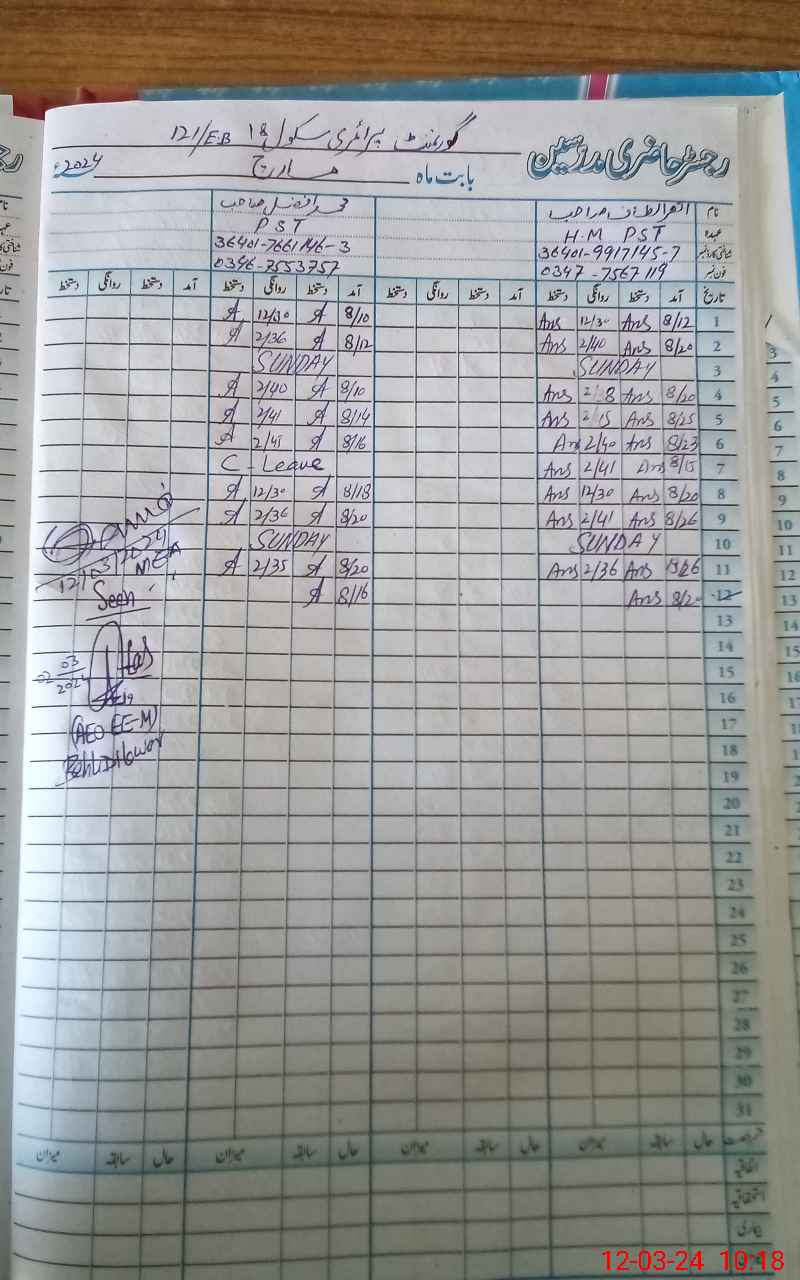 گورنمنٹ پرائمری سکول 18 121/E.B
رجسٹر حاضری مدرسین
بابت ماہ مارچ 2024ء
نام
عہدہ H.M PST PST
شناختی کارڈ نمبر 36401-9917145-7 36401-7661746-3
فون نمبر 0347-7567119 0346-7553757
تاریخ آمد دستخط روانگی دستخط آمد دستخط روانگی دستخط آمد دستخط روانگی دستخط آمد دستخط روانگی دستخط
1 8/12 Ans 12/30 Ans 8/10 A 12/30 A
2 8/20 Ans 2/40 Ans 8/12 A 2/36 A
3 SUNDAY SUNDAY
4 8/20 Ans Ans 8/10 A 2/40 A
5 8/25 Ans 2/15 Ans 8/14 A 2/41 A
6 8/23 Ans 2/40 An 8/16 A 2/45 A
7 8/15 Ans 2/41 Ans C-Leave
8 8/20 Ans 12/30 Ans 8/18 A 12/30 A
9 8/26 Ans 2/41 Ans 8/20 A 2/36 A
10 SUNDAY SUNDAY
11 Ans 2/36 Ans 8/20 A 2/35 A
12 Ans 8/16 A
12/03/2024
MEA
Seen
03
2024
(AEO EE-M)
13
14
15
16
17
18
19
20
21
22
23
24
25
26
27
28
29
30
31
حال سابقہ میزان حال سابقہ میزان حال سابقہ میزان حال سابقہ میزان
اتفاقیہ
استحقاقیہ
بیماری
12-03-24 10:18